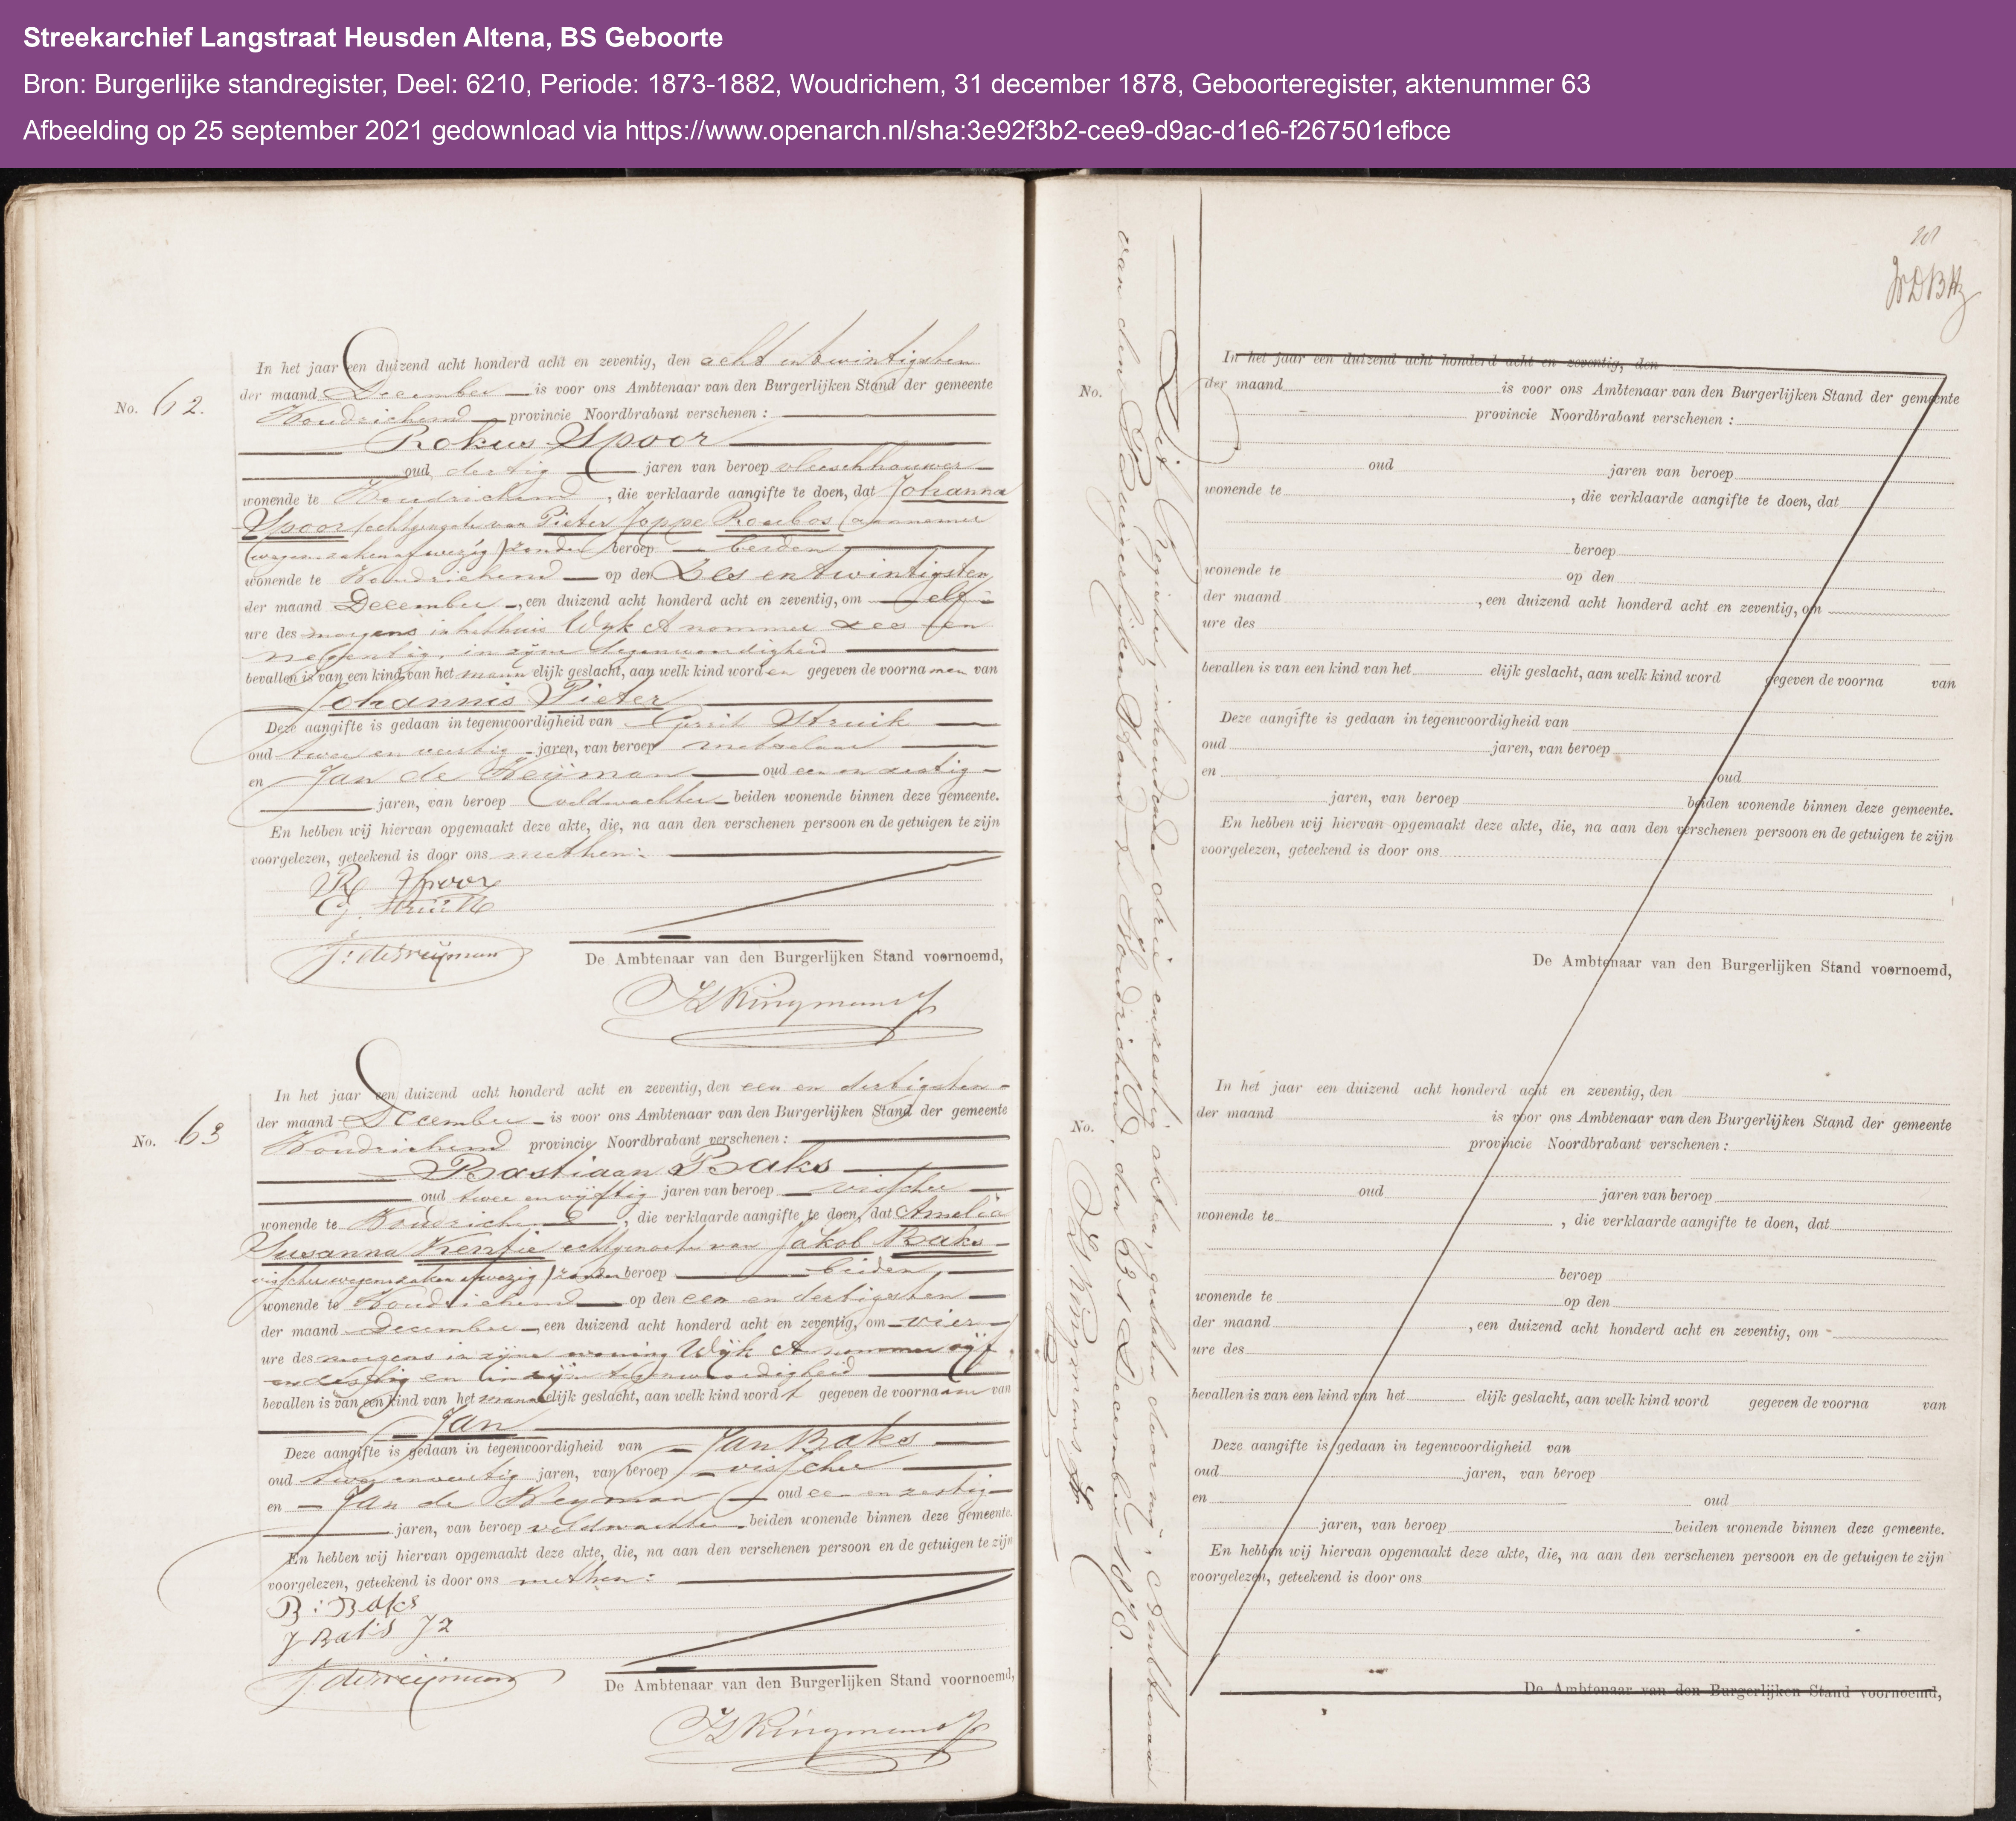 Streekarchief Langstraat Heusden Altena, BS Geboorte
Bron: Burgerlijke standregister, Deel: 6210, Periode: 1873-1882, Woudrichem, 31 december 1878, Geboorteregister, aktenummer 63
Afbeelding op 25 september 2021 gedownload via https://www.openarch.nl/sha:3e92f3b2-cee9-d9ac-d1e6-f267501efbce
No. 62.
In het jaar een duizend acht honderd acht en zeventig, den acht en twintigsten
der maand December is voor ons Ambtenaar van den Burgerlijken Stand der gemeente
Woudrichem provincie Noordbrabant verschenen:
Rokus Spoor
oud dertig jaren van beroep vleeschhouwer
wonende te Woudrichem, die verklaarde aangifte te doen, dat Johanna
Spoor echtgenoote van Pieter Joppe Roubos (aannemer
(wegens zaken afwezig) zonder beroep beiden
wonende te Woudrichem op den Zes en twintigsten
der maand December, een duizend acht honderd acht en zeventig, om elf
ure des morgens in het huis Wyk A nommer zes en
negentig, in zijne tegenwoordigheid
bevallen is van een kind van het mannelijk geslacht, aan welk kind worden gegeven de voornamen van
Johannis Pieter
Deze aangifte is gedaan in tegenwoordigheid van Gerrit Struik
oud twee en veertig jaren, van beroep metselaar
en Jan de Weijman oud een en zestig
jaren, van beroep veldwachter beiden wonende binnen deze gemeente.
En hebben wij hiervan opgemaakt deze akte, die, na aan den verschenen persoon en de getuigen te zijn
voorgelezen, geteekend is door ons met hen:
R Spoor
G. Struik
J: de Weijman
De Ambtenaar van den Burgerlijken Stand voornoemd,
No. 63
In het jaar een duizend acht honderd acht en zeventig, den een en dertigsten
der maand December is voor ons Ambtenaar van den Burgerlijken Stand der gemeente
Woudrichem provincie Noordbrabant verschenen:
Bastiaan Baks
oud twee en vijftig jaren van beroep visscher
wonende te Woudrichem, die verklaarde aangifte te doen, dat Amelia
Susanna echtgenoote van Jakob Baks
visscher wegens zaken afwezig) zonder beroep beiden,
wonende te Woudrichem op den een en dertigsten
der maand December, een duizend acht honderd acht en zeventig, om vier
ure des morgens in zijne woning Wijk A nommer vijf
en dertig en in zijn tegenwoordigheid
bevallen is van een kind van het mannelijk geslacht, aan welk kind wordt gegeven de voornaam van
Jan
Deze aangifte is gedaan in tegenwoordigheid van Jan Baks
oud twee en veertig jaren, van beroep visscher
en Jan de Weyman oud een en zestig
jaren, van beroep veldwachter beiden wonende binnen deze gemeente.
En hebben wij hiervan opgemaakt deze akte, die, na aan den verschenen persoon en de getuigen te zijn
voorgelezen, geteekend is door ons met hen:
B: Baks
J Baks Jz
J. de Weijman
De Ambtenaar van den Burgerlijken Stand voornoemd,
Dit Register, inhoudende drie en zestig akten, gesloten door mij, Ambtenaar
van den Burgerlijken Stand te Woudrichem, den 31 December 1878.
No.
In het jaar een duizend acht honderd acht en zeventig, den
der maand is voor ons Ambtenaar van den Burgerlijken Stand der gemeente
provincie Noordbrabant verschenen:
oud jaren van beroep
wonende te , die verklaarde aangifte te doen, dat
beroep
wonende te op den
der maand , een duizend acht honderd acht en zeventig, om
ure des
bevallen is van een kind van het elijk geslacht, aan welk kind word gegeven de voorna van
Deze aangifte is gedaan in tegenwoordigheid van
oud jaren, van beroep
en oud
jaren, van beroep beiden wonende binnen deze gemeente.
En hebben wij hiervan opgemaakt deze akte, die, na aan den verschenen persoon en de getuigen te zijn
voorgelezen, geteekend is door ons
De Ambtenaar van den Burgerlijken Stand voornoemd,
No.
In het jaar een duizend acht honderd acht en zeventig, den
der maand is voor ons Ambtenaar van den Burgerlijken Stand der gemeente
provincie Noordbrabant verschenen:
oud jaren van beroep
wonende te , die verklaarde aangifte te doen, dat
beroep
wonende te op den
der maand , een duizend acht honderd acht en zeventig, om
ure des
bevallen is van een kind van het elijk geslacht, aan welk kind word gegeven de voorna van
Deze aangifte is gedaan in tegenwoordigheid van
oud jaren, van beroep
en oud
jaren, van beroep beiden wonende binnen deze gemeente.
En hebben wij hiervan opgemaakt deze akte, die, na aan den verschenen persoon en de getuigen te zijn
voorgelezen, geteekend is door ons
De Ambtenaar van den Burgerlijken Stand voornoemd,